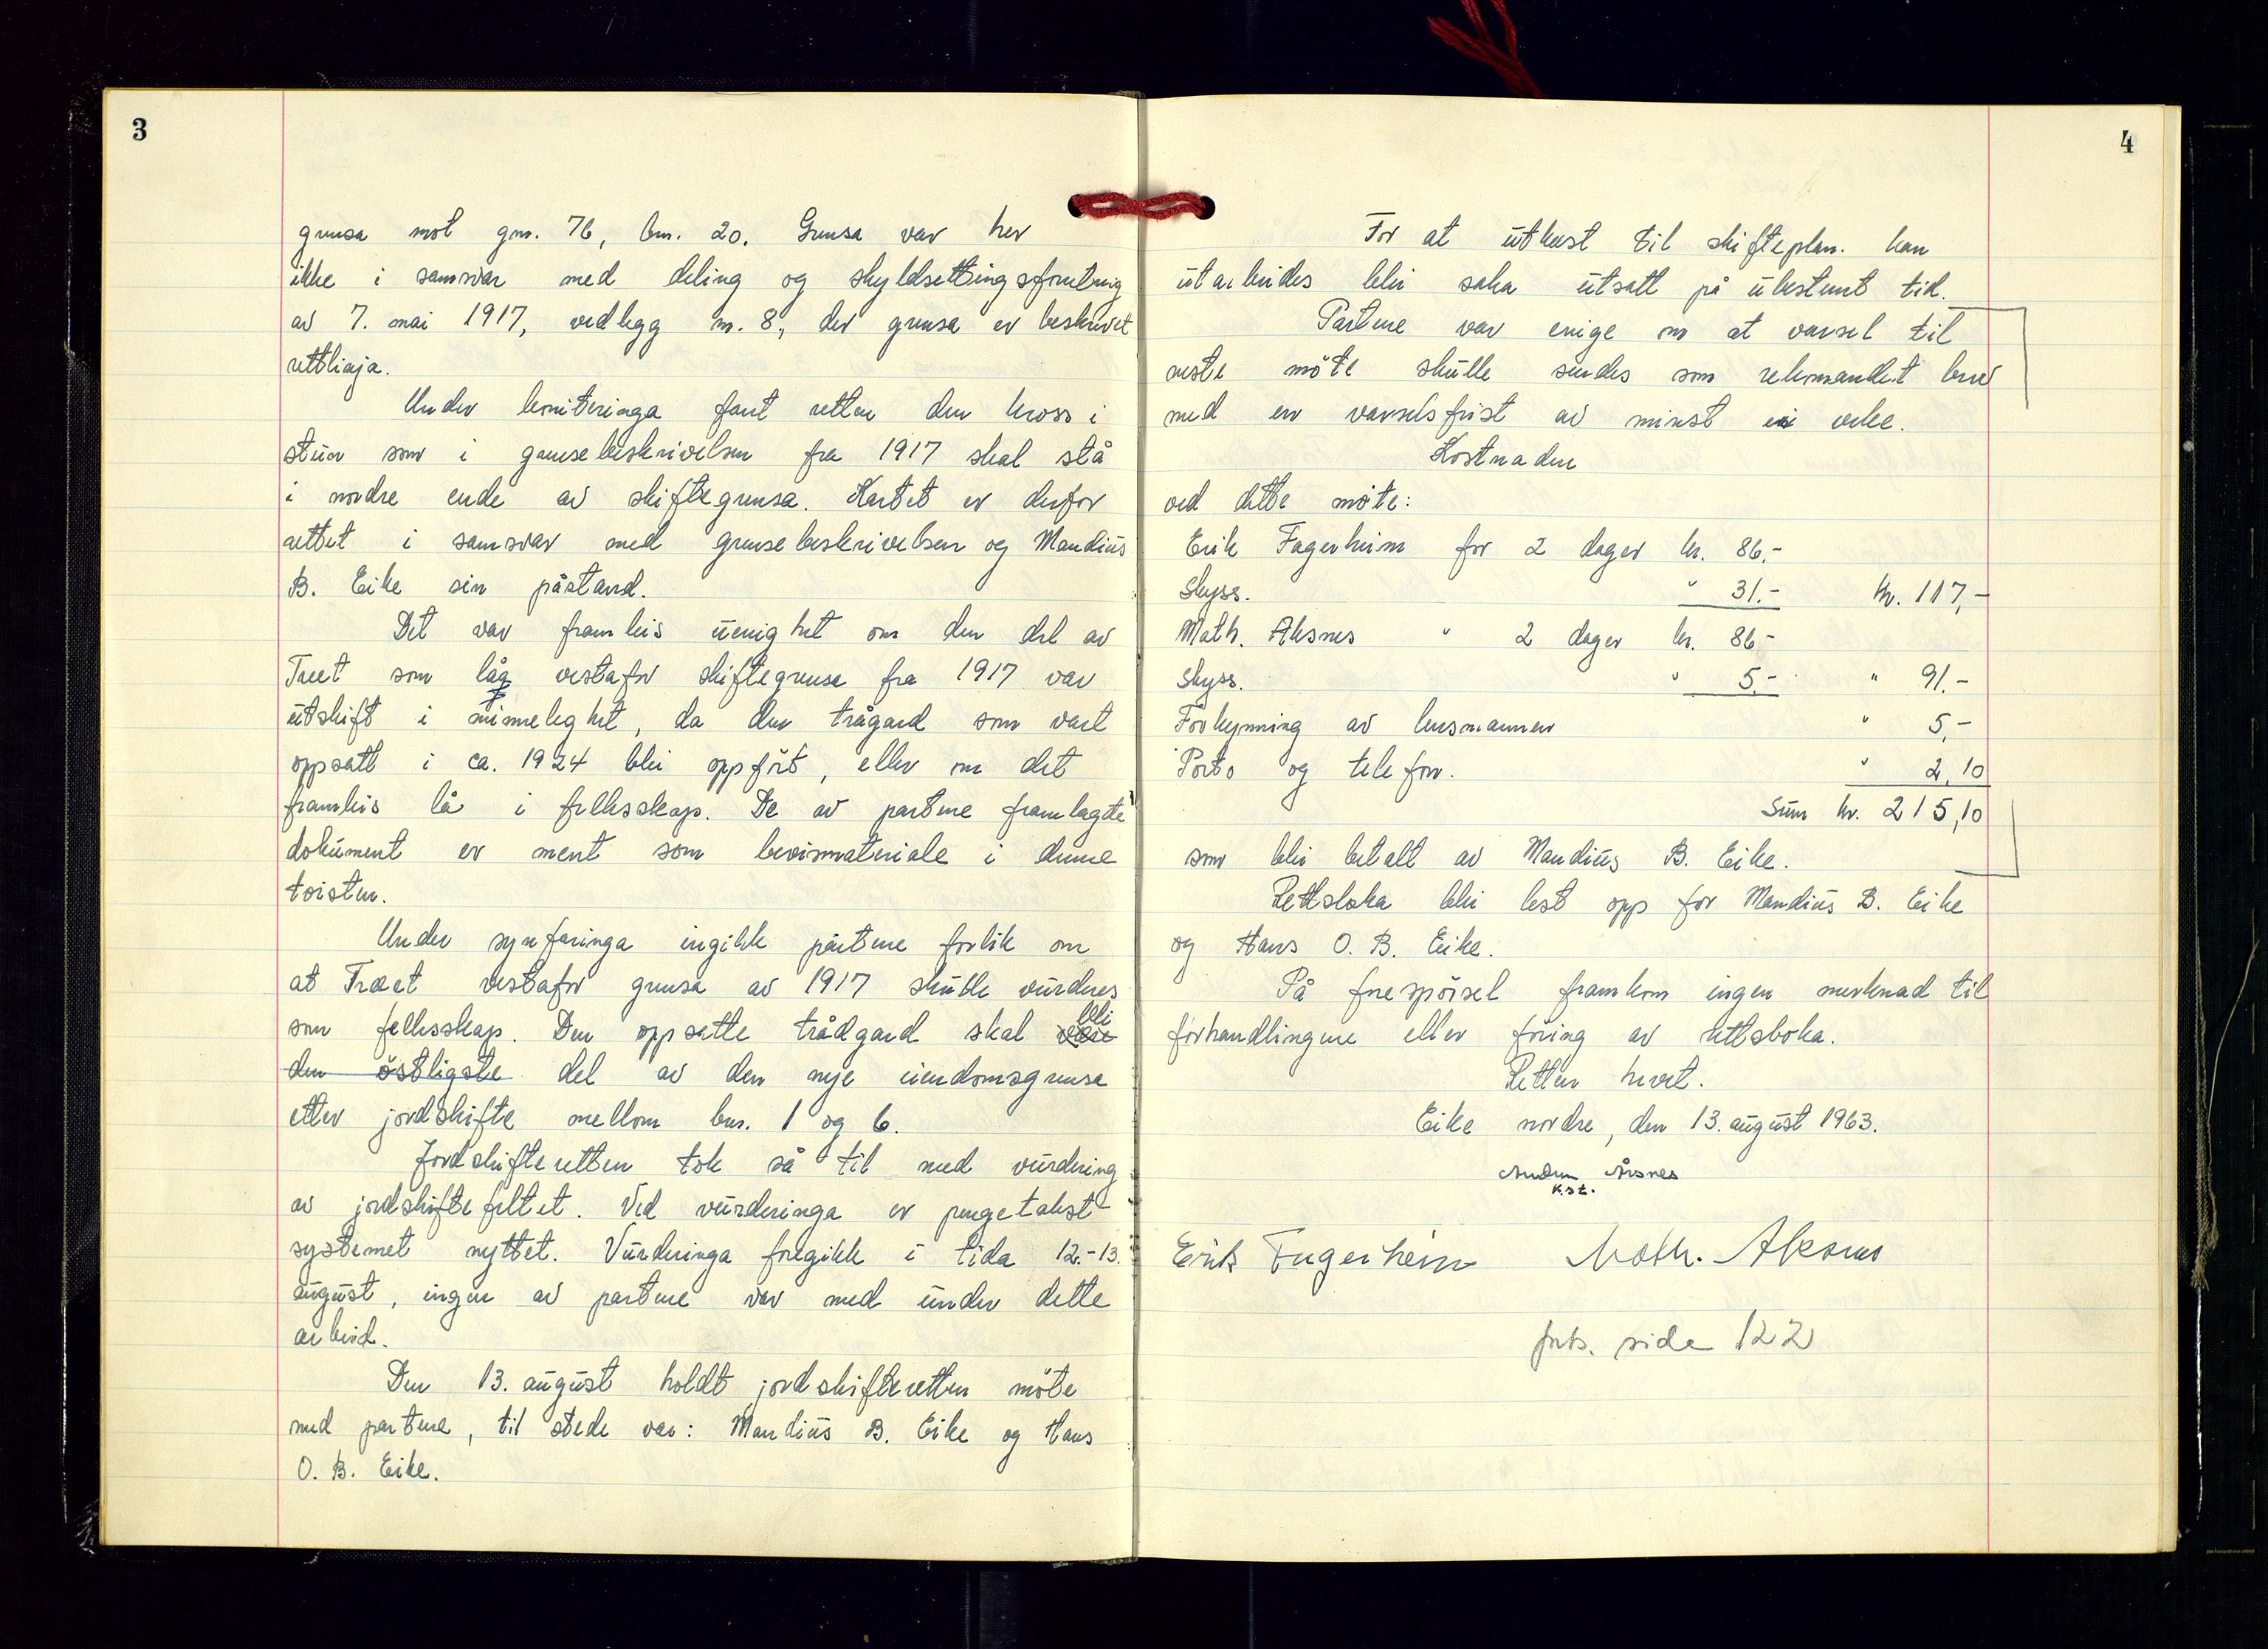 3
grensa mot gnr. 76, bnr. 20. Grensa var her
ikke i samsvar med deling og skyldsettingsforretning
av 7. mai 1917, vedlegg nr. 8, der grensa er beskrivet
rettlinja.
Under boniteringa fant retten den kross i
stein som i grensebeskrivelsen fra 1917 skal stå
i nordre ende av skiftegrensa. Kartet er derfor
rettet i samsvar med grensebeskrivelsen og Mandius
B. Eike sin påstand.
Det var framleis uenighet om den del av
Træet som låg vestafor skiftegrensa fra 1917 var
utskift i minnelighet, da den trågard som vart
oppsatt i ca. 1924 blei oppført, eller om det
framleis lå i fellesskap. De av partene framlagte
dokument er ment som bevismateriale i denne
tvisten.
Under synfaringa ingikk partene forlik om
at Træet vestafor grensa av 1917 skulle vurderes
som fellesskap. Den oppsette trådgard skal være bli
den östligste del av den nye eiendomsgrense
etter jordskifte mellom bnr. 1 og 6.
Jordskifteretten tok så til med vurdering
av jordskiftefeltet. Ved vurderinga er pengetakst
systemet nyttet. Vurderinga foregikk i tida 12.-13.
august, ingen av partene var med under dette
arbeid.
Den 13. august holdt jordskifteretten möte
med partene, til stede var: Mandius B. Eike og Hans
O. B. Eike.
4
For at utkast til skifteplan. kan
utarbeides blei saka utsatt på ubestemt tid.
Partene var enige om at varsel til
neste möte skulle sendes som rekomandert brev
med en varselsfrist av minst ei veke.
Kostnaden
ved dette möte:
Erik Fagerheim for 2 dager kr. 86,-
Skyss. " 31.- kr. 117,-
Math. Aksnes " 2 dager kr. 86-
Skyss. " 5.- " 91.-
Forkynning av lensmannen " 5,-
Porto og telefon. " 2,10
Sum kr. 215,10
som blei betalt av Mandius B. Eike.
Rettsboka blei lest opp for Mandius B. Eike
og Hans O. B. Eike.
På forespörsel framkom ingen merknad til
forhandlingene eller föring av rettsboka.
Retten hevet.
Eike nordre, den 13. august 1963.
Audun Årsnes
k.st.
Erik Fagerheim Math. Aksnes
forts. side 122